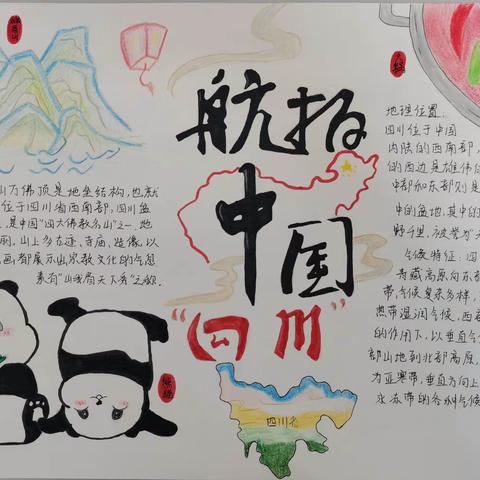 航拍
中国
"四川"
山万佛顶是地垒结构,也就
位于四川省西南部,四川盆
是中国"四大佛教名山"之一.地
丽,山上多古迹、寺庙、造像,以
画都展示出宗教文化的气息
素有"山浅眉天下秀"之称.
熊猫
四川省
火锅
地理位置:
四川位于中国
内陆的西南部,
的西边是雄伟
中部和东部则是
中的盆地,其中的
野千里,被誉为"天
气候特征:四
青藏高原向东
带,气候复杂多样,
热带湿润气候,西
的作用下,以垂直气
部山地到北部高原,
为亚寒带,垂直方向上
永冻带的各种气候